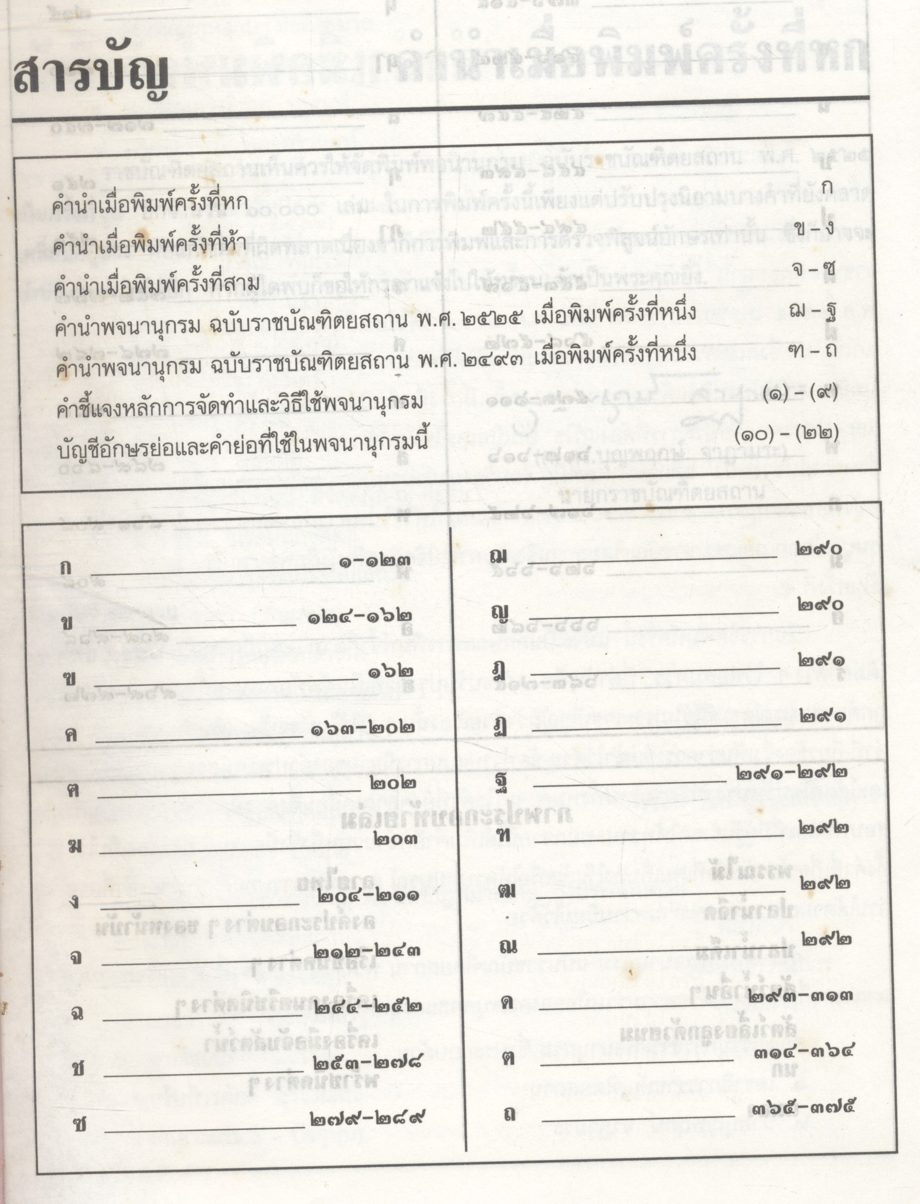 สารบัญ
คำนำเมื่อพิมพ์ครั้งที่หก ก
คำนำเมื่อพิมพ์ครั้งที่ห้า ข – ง
คำนำเมื่อพิมพ์ครั้งที่สาม จ – ซ
คำนำพจนานุกรม ฉบับราชบัณฑิตยสถาน พ.ศ. ๒๕๒๕ เมื่อพิมพ์ครั้งที่หนึ่ง ฌ – ฐ
คำนำพจนานุกรม ฉบับราชบัณฑิตยสถาน พ.ศ. ๒๔๙๓ เมื่อพิมพ์ครั้งที่หนึ่ง ฑ – ถ
คำชี้แจงหลักการจัดทำและวิธีใช้พจนานุกรม (๑) – (๙)
บัญชีอักษรย่อและคำย่อที่ใช้ในพจนานุกรมนี้ (๑๐) – (๒๒)
ก ๑-๑๒๓
ข ๑๒๔-๑๖๒
ฃ ๑๖๒
ค ๑๖๓-๒๐๒
ฅ ๒๐๒
ฆ ๒๐๓
ง ๒๐๔-๒๑๑
จ ๒๑๒-๒๔๓
ฉ ๒๔๔-๒๕๒
ช ๒๕๓-๒๗๘
ซ ๒๗๙-๒๘๙
ฌ ๒๙๐
ญ ๒๙๐
ฎ ๒๙๑
ฏ ๒๙๑
ฐ ๒๙๑-๒๙๒
ฑ ๒๙๒
ฒ ๒๙๒
ณ ๒๙๒
ด ๒๙๓-๓๑๓
ต ๓๑๔-๓๖๔
ถ ๓๖๕-๓๗๕